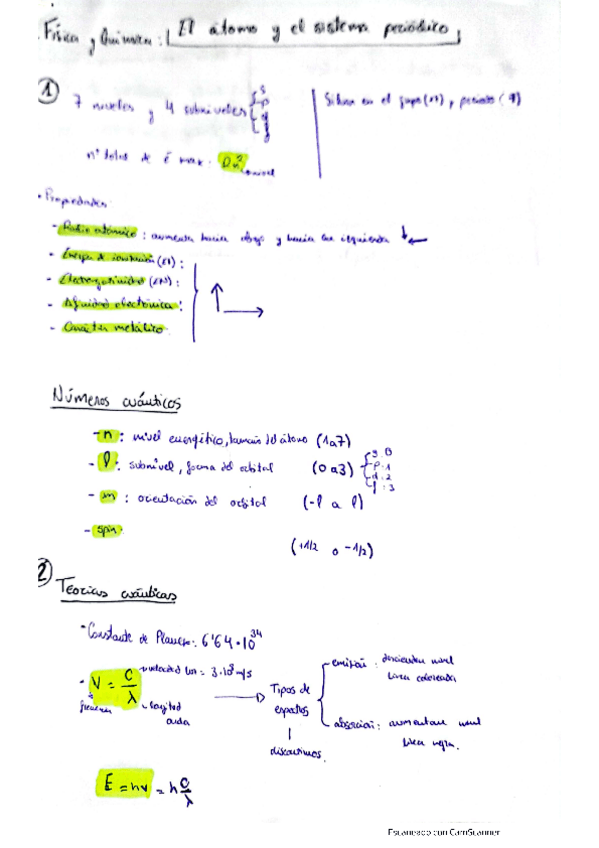 Física y Química: El átomo y el sistema periódico
1) 7 niveles y 4 subniveles { s p d f
Situar en el grupo (n), periodo (
nº total de é max. 2n² nivel
Propiedades:
- Radio atómico: aumenta hacia abajo y hacia la izquierda ↓←
- Energía de ionización (EI):
- Electronegatividad (EN):
- Afinidad electrónica:
- Carácter metálico:
Números cuánticos
- n: nivel energético, tamaño del átomo (1 a 7)
- l: subnivel, forma del orbital (0 a 3) { s: 0 p: 1 d: 2 f: 3
- m: orientación del orbital (-l a l)
- spin: (+1/2 o -1/2)
2) Teorías cuánticas
Constante de Planck: 6'64·10³⁴
velocidad luz = 3·10⁸ m/s
V = C/λ
frecuencia
longitud onda
Tipos de espectros
discontinuos.
emisión: descienden nivel
línea coloreada
absorción: aumentan nivel
línea negra.
E = hν = h C/λ
Escaneado con CamScanner